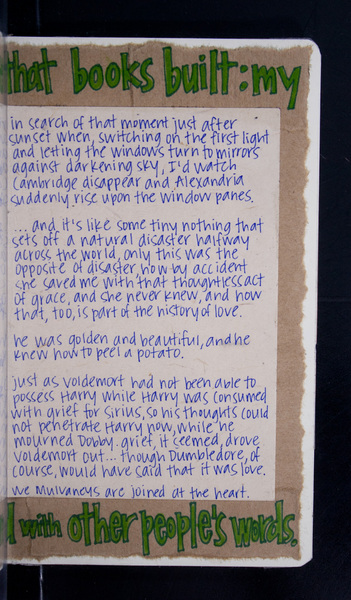 that books built: my
in search of that moment just after
sunset when, switching on the first light
and letting the windows turn to mirrors
against darkening sky, I'd watch
Cambridge disappear and Alexandria
suddenly rise upon the window panes.
... and it's like some tiny nothing that
sets off a natural disaster halfway
across the world, only this was the
opposite of disaster, how by accident
she saved me with that thoughtless act
of grace, and she never knew, and how
that, too, is part of the history of love.
he was golden and beautiful, and he
knew how to peel a potato.
just as Voldemort had not been able to
possess Harry while Harry was consumed
with grief for Sirius, so his thoughts could
not penetrate Harry now, while he
mourned Dobby. grief, it seemed, drove
Voldemort out... though Dumbledore, of
course, would have said that it was love.
we Mulvaneys are joined at the heart.
with other people's words.